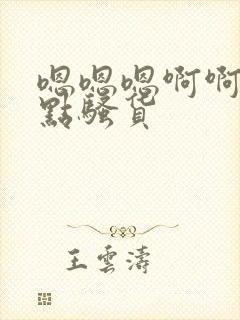 嗯嗯嗯啊啊
點騷貨
王雲濤